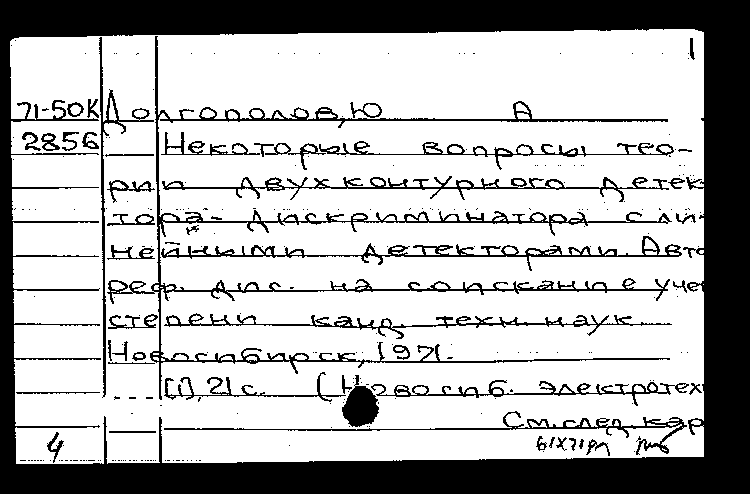 1
71-50К Долгополов, Ю А
2856 Некоторые вопросы тео-
рии двухконтурного детек
тора-дискриминатора с ли-
нейными детекторами. Авто
реф. дис. на соискание учен
степени канд. техн. наук
Новосибирск, 1971.
[1], 21 с. (Новосиб. электротехн
См. след. кар
4